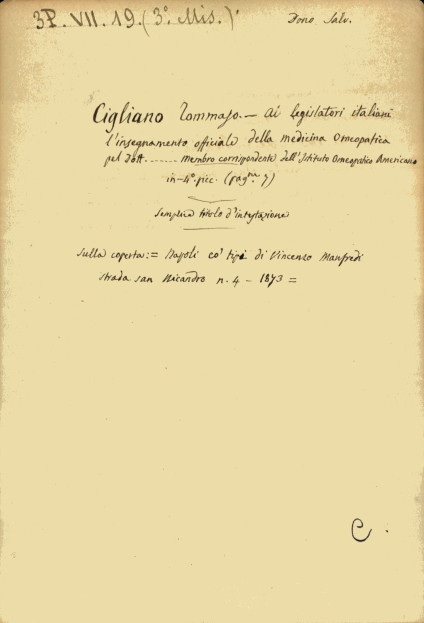 3P. VII. 19. (3º. Mis.)
Dono Salv.
Cigliano Tommaso. — Ai legislatori italiani
l'insegnamento officiale della medicina Omeopatica
pel Dott. ........ membro corrispondente dell'Istituto Omeopatico Americano
in-4º. picc. (pagne. 7)
Semplice titolo d'intestazione
Sulla coperta: = Napoli co' tipi di Vincenzo Manfredi
strada san Nicandro n. 4 - 1873 =
C.